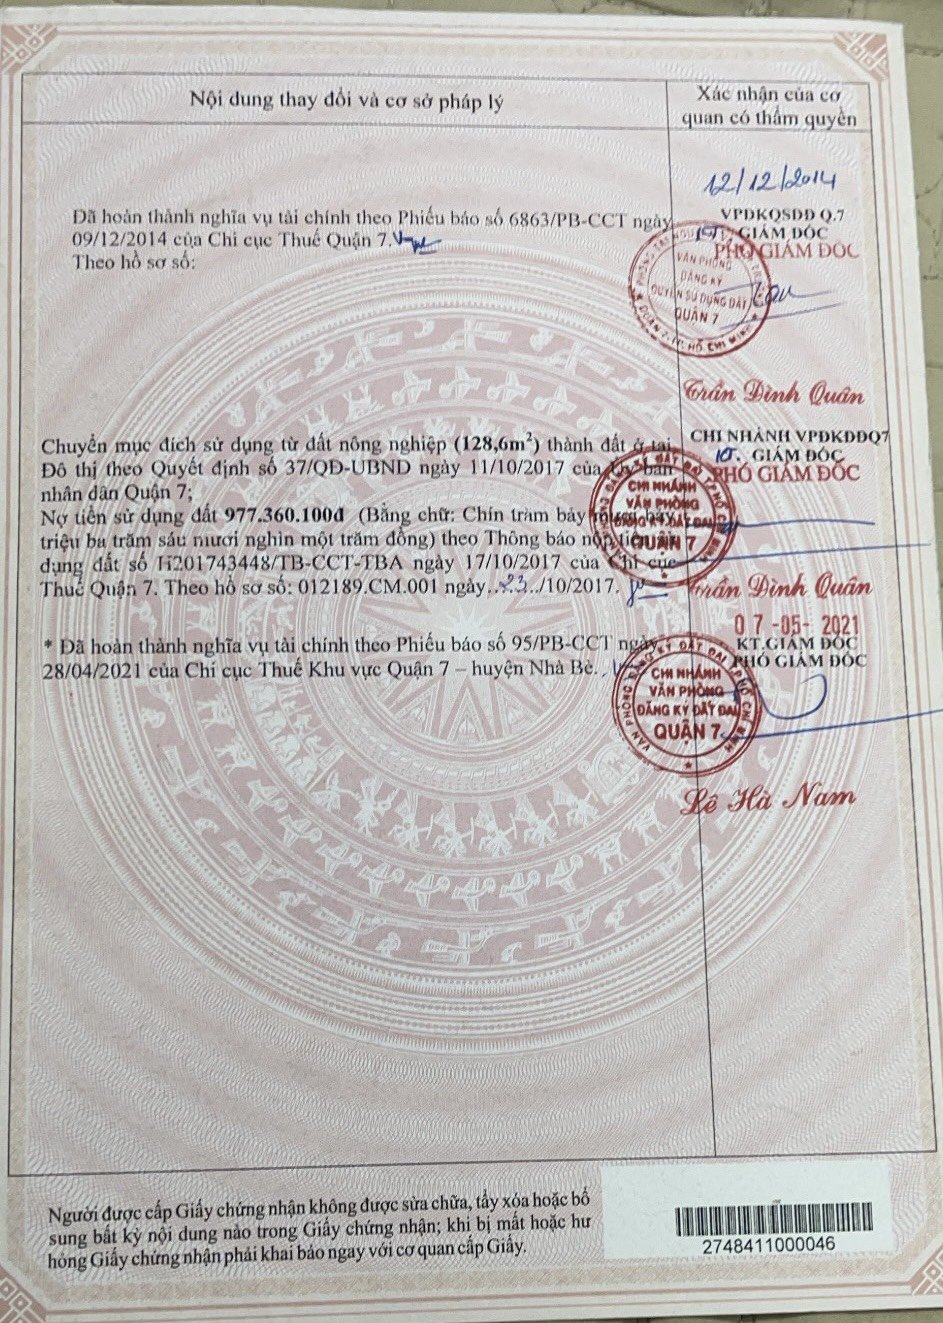 Nội dung thay đổi và cơ sở pháp lý
Xác nhận của cơ
quan có thẩm quyền
12/12/2014
Đã hoàn thành nghĩa vụ tài chính theo Phiếu báo số 6863/PB-CCT ngày
09/12/2014 của Chi cục Thuế Quận 7.
Theo hồ sơ số:
VPĐKQSDĐ Q.7
GIÁM ĐỐC
PHÓ GIÁM ĐỐC
VĂN PHÒNG
ĐĂNG KÝ
QUYỀN SỬ DỤNG ĐẤT
QUẬN 7
QUẬN 7 T.P HỒ CHÍ MINH
Trần Đình Quân
Chuyển mục đích sử dụng từ đất nông nghiệp (128,6m²) thành đất ở tại
Đô thị theo Quyết định số 37/QĐ-UBND ngày 11/10/2017 của Ủy ban
nhân dân Quận 7;
Nợ tiền sử dụng đất 977.360.100đ (Bằng chữ: Chín trăm bảy mươi bảy
triệu ba trăm sáu mươi nghìn một trăm đồng) theo Thông báo nộp tiền
dụng đất số 201743448/TB-CCT-TBA ngày 17/10/2017 của Chi cục
Thuế Quận 7. Theo hồ sơ số: 012189.CM.001 ngày..23../10/2017.
CHI NHÁNH VPĐKĐĐQ7
GIÁM ĐỐC
PHÓ GIÁM ĐỐC
CHI NHÁNH
VĂN PHÒNG
ĐĂNG KÝ ĐẤT ĐAI
QUẬN 7
Trần Đình Quân
* Đã hoàn thành nghĩa vụ tài chính theo Phiếu báo số 95/PB-CCT ngày
28/04/2021 của Chi cục Thuế Khu vực Quận 7 – huyện Nhà Bè.
07-05-2021
KT.GIÁM ĐỐC
PHÓ GIÁM ĐỐC
VĂN PHÒNG ĐĂNG KÝ ĐẤT ĐAI T.P HỒ CHÍ MINH
CHI NHÁNH
VĂN PHÒNG
ĐĂNG KÝ ĐẤT ĐAI
QUẬN 7
Lê Hà Nam
Người được cấp Giấy chứng nhận không được sửa chữa, tẩy xóa hoặc bổ
sung bất kỳ nội dung nào trong Giấy chứng nhận; khi bị mất hoặc hư
hỏng Giấy chứng nhận phải khai báo ngay với cơ quan cấp Giấy.
2748411000046